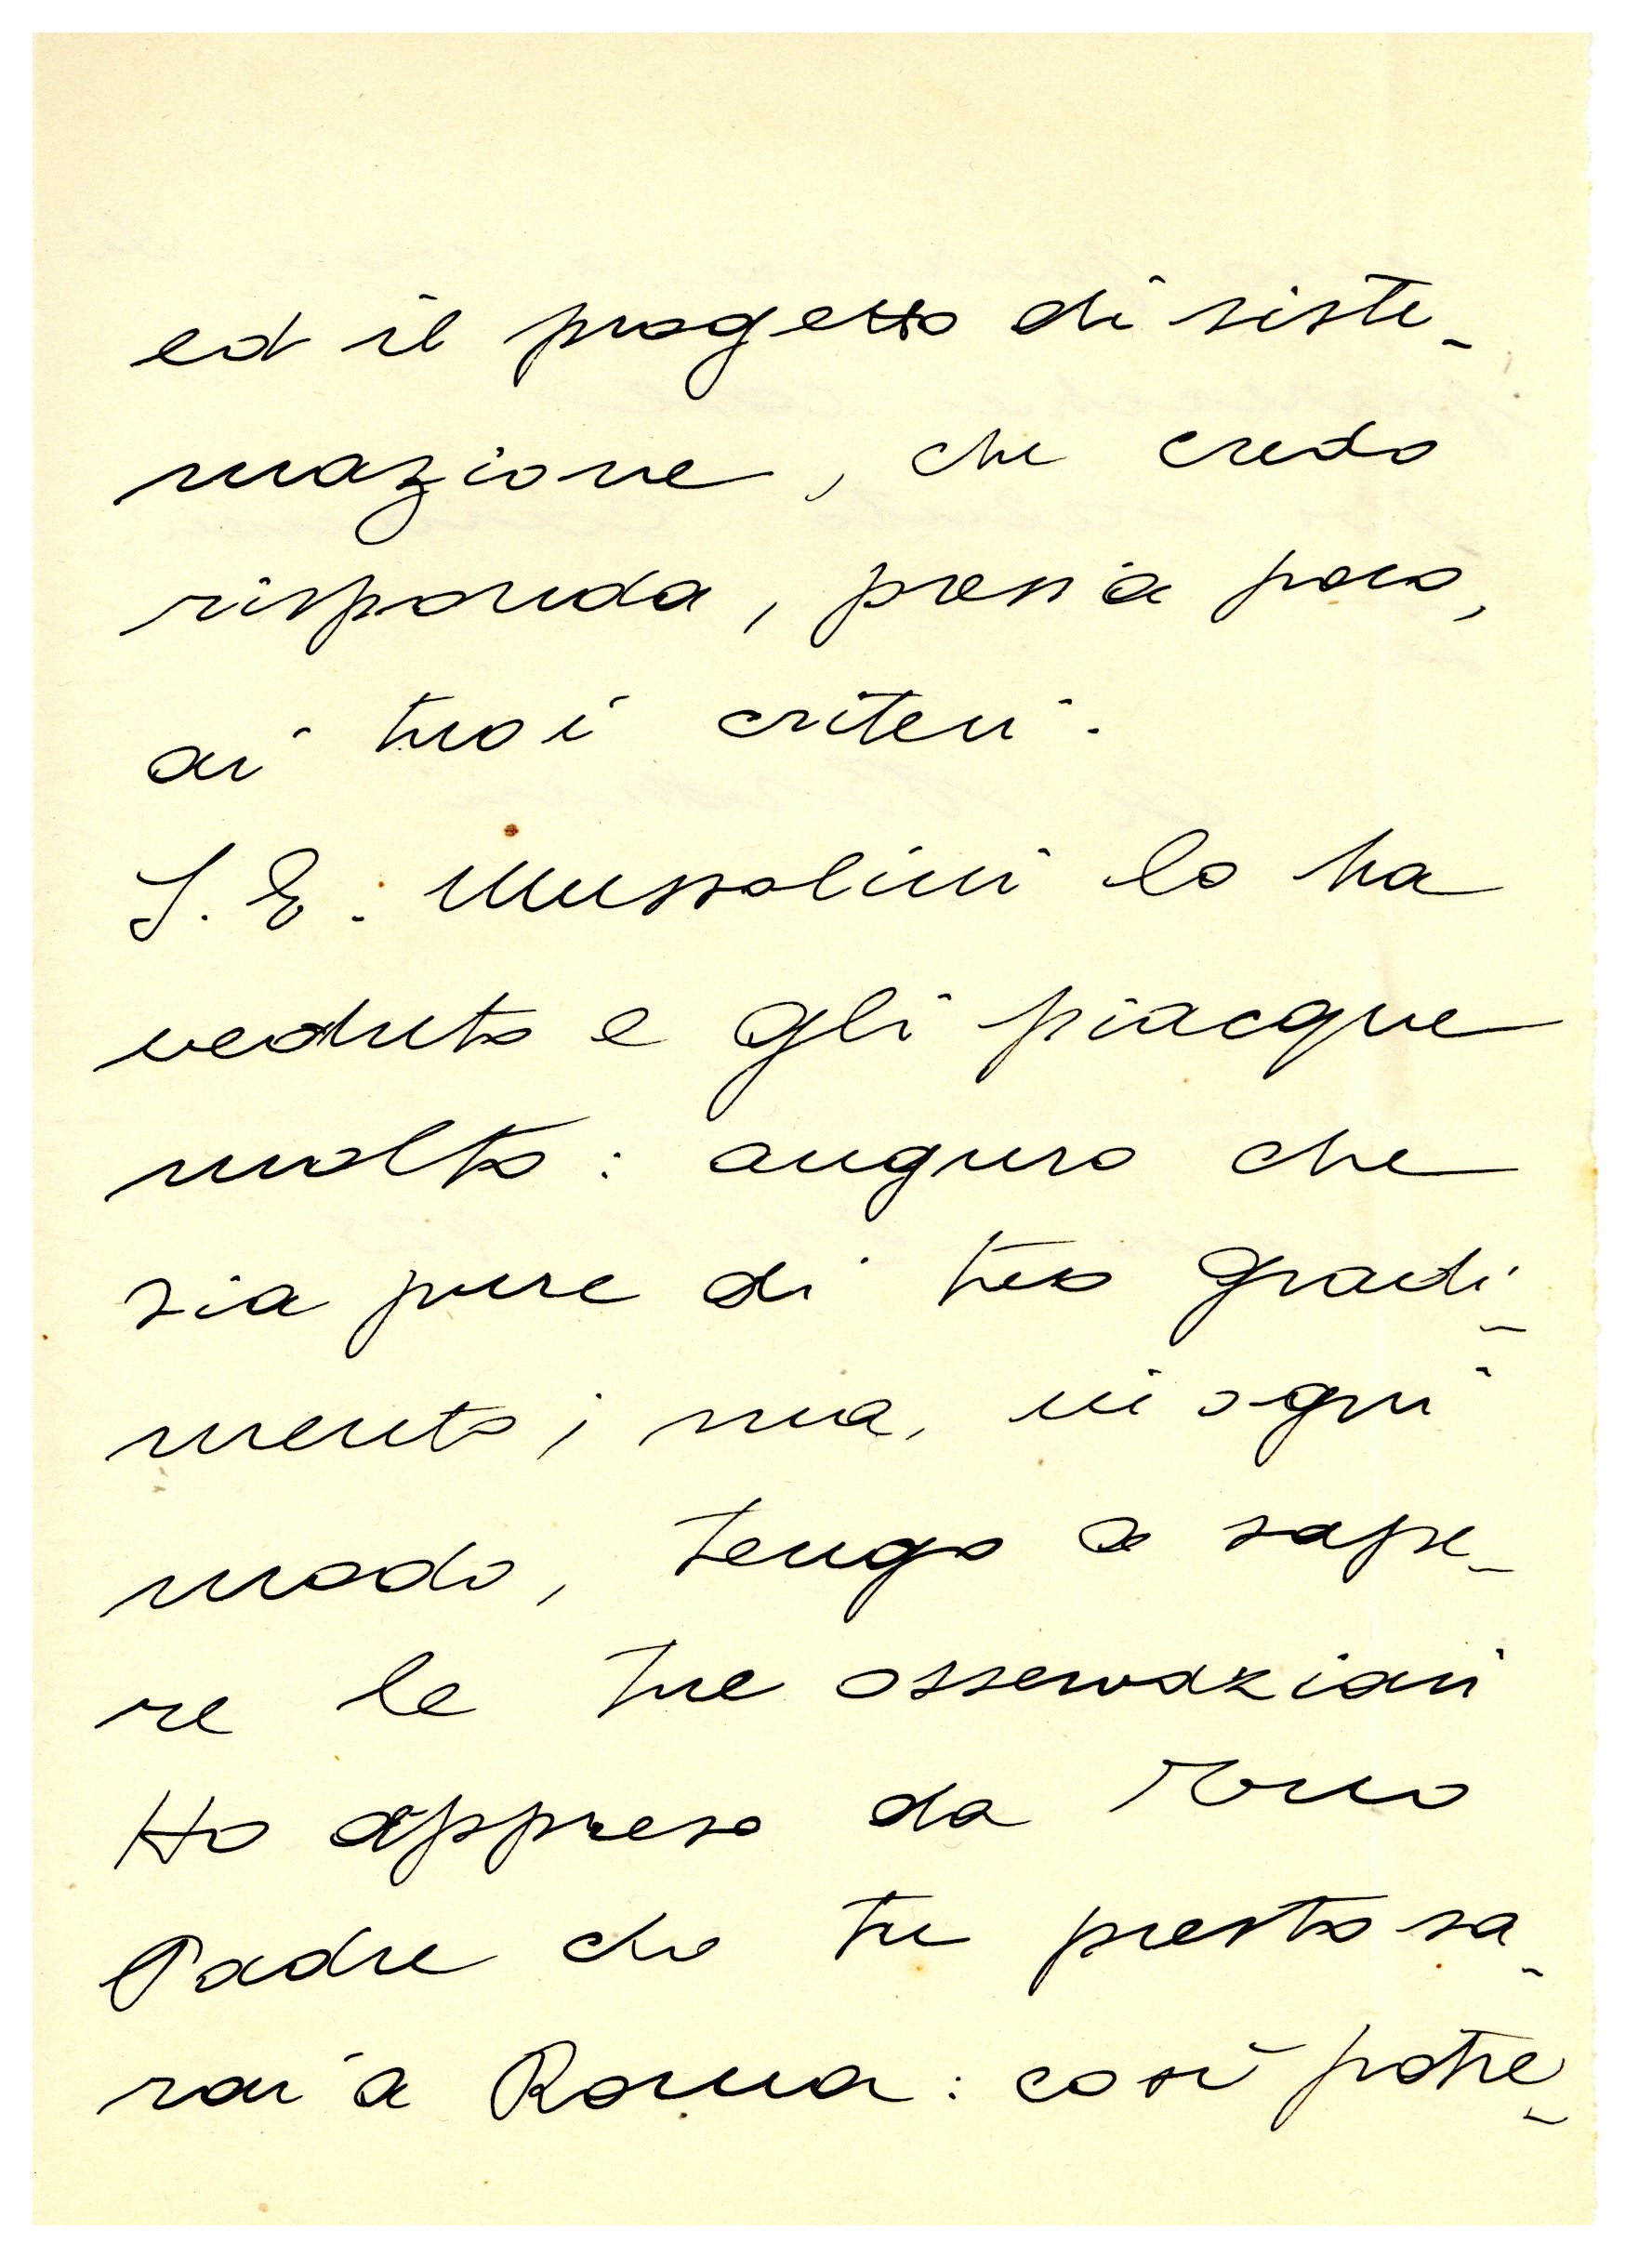 ed il progetto di siste-
mazione, che credo
risponda, press'a poco,
ai tuoi criteri.
S. E. Mussolini lo ha
veduto e gli piacque
molto: auguro che
sia pure di tuo gradi-
mento; ma, in ogni
modo, tengo a sape-
re le tue osservazioni
Ho appreso da Tuo
Padre che tu presto sa-
rai a Roma: così potre-